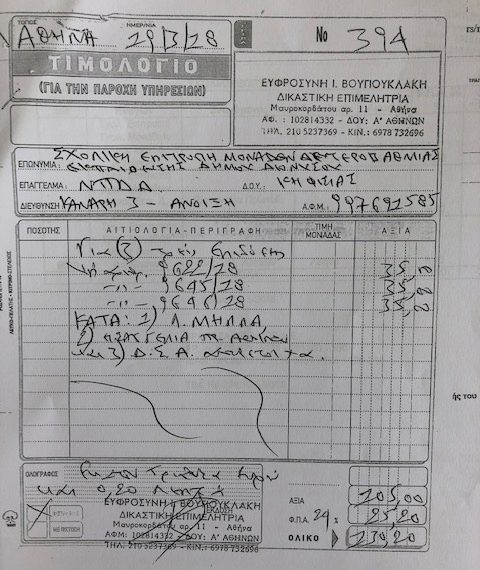 ΤΟΠΟΣ ΗΜΕΡ/ΝΙΑ
ΑΘΗΝΑ 29/3/18 Νο 394
ΤΙΜΟΛΟΓΙΟ
(ΓΙΑ ΤΗΝ ΠΑΡΟΧΗ ΥΠΗΡΕΣΙΩΝ)
ΕΥΦΡΟΣΥΝΗ Ι. ΒΟΥΓΙΟΥΚΛΑΚΗ
ΔΙΚΑΣΤΙΚΗ ΕΠΙΜΕΛΗΤΡΙΑ
Μαυροκορδάτου αρ. 11 - Αθήνα
ΑΦ. : 102814332 - ΔΟΥ: Α' ΑΘΗΝΩΝ
ΤΗΛ. 210 5237369 - ΚΙΝ.: 6978 732696
ΣΧΟΛΙΚΗ ΕΠΙΤΡΟΠΗ ΜΟΝΑΔΩΝ ΔΕΥΤΕΡΟΒΑΘΜΙΑΣ
ΕΠΩΝΥΜΙΑ: ΕΚΠΑΙΔΕΥΣΗΣ ΔΗΜΟΥ ΔΙΟΝΥΣΟΥ
ΕΠΑΓΓΕΛΜΑ: ΝΠΔΔ Δ.Ο.Υ.: ΚΗΦΙΣΙΑΣ
ΔΙΕΥΘΥΝΣΗ ΚΑΝΑΡΗ 3 - ΑΝΟΙΞΗ Α.Φ.Μ.: 997691585
ΠΟΣΟΤΗΣ ΑΙΤΙΟΛΟΓΙΑ-ΠΕΡΙΓΡΑΦΗ ΤΙΜΗ ΜΟΝΑΔΑΣ ΑΞΙΑ
Για (3) τρεις επιδόσεις
9622/18 35,
-//- 9645/18 35,
-//- 9646/18 35,
ΚΑΤΑ: 1) Λ. ΜΗΛΛΑ
2) ΕΙΣΑΓΓΕΛΙΑ
και 3) Δ.Σ.Α.
ΟΛΟΓΡΑΦΩΣ Εκατον Τριάντα ευρώ
και 0,20 λεπτά
ΕΥΦΡΟΣΥΝΗ Ι. ΒΟΥΓΙΟΥΚΛΑΚΗ
ΕΚΔΟΣΗ
ΔΙΚΑΣΤΙΚΗ ΕΠΙΜΕΛΗΤΡΙΑ
Μαυροκορδάτου αρ. 11 - Αθήνα
ΑΦΜ: 102814332 - ΔΟΥ: Α' ΑΘΗΝΩΝ
ΤΗΛ. 210 5237369 - ΚΙΝ.: 6978 732696
ΜΕ ΠΙΣΤΩΣΗ
ΑΞΙΑ 105,00
Φ.Π.Α. 24 % 25,20
ΟΛΙΚΟ 130,20
ής του